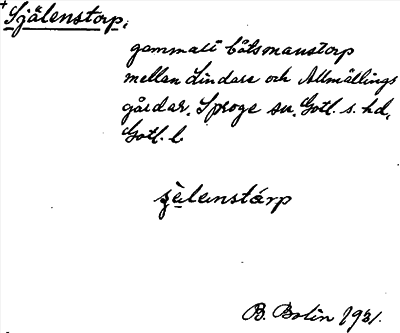 + Själenstorp,
gammalt båtsmanstorp
mellan Lindare och Allmällings
gårdar. Sproge sn. Gotl. s. hd,
Gotl. l.
sèlenstárp
B. Bolin 1931.